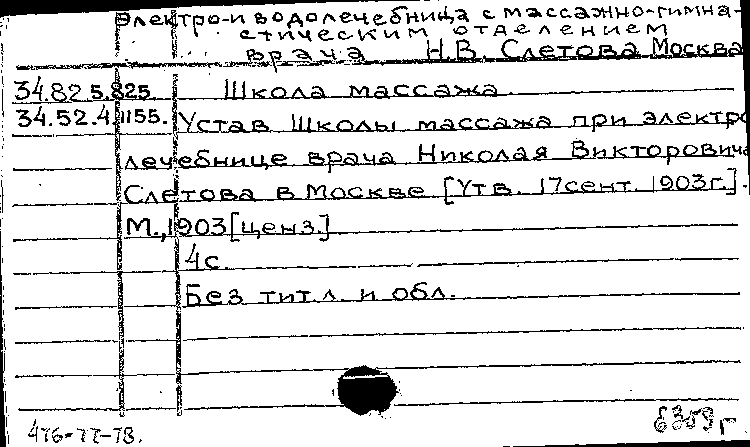 Электро-и водолечебница с массажно-гимна-
стическим отделением
врача Н.В. Слетова Москва
34.82 5.825 Школа массажа
34.52.4.1155. Устав Школы массажа при электро
лечебнице врача Николая Викторовича
Слетова в Москве [Утв. 17 сент. 1903г.].
М., 1903 [ценз.]
4с.
Без тит.л. и обл.
476-77-78.